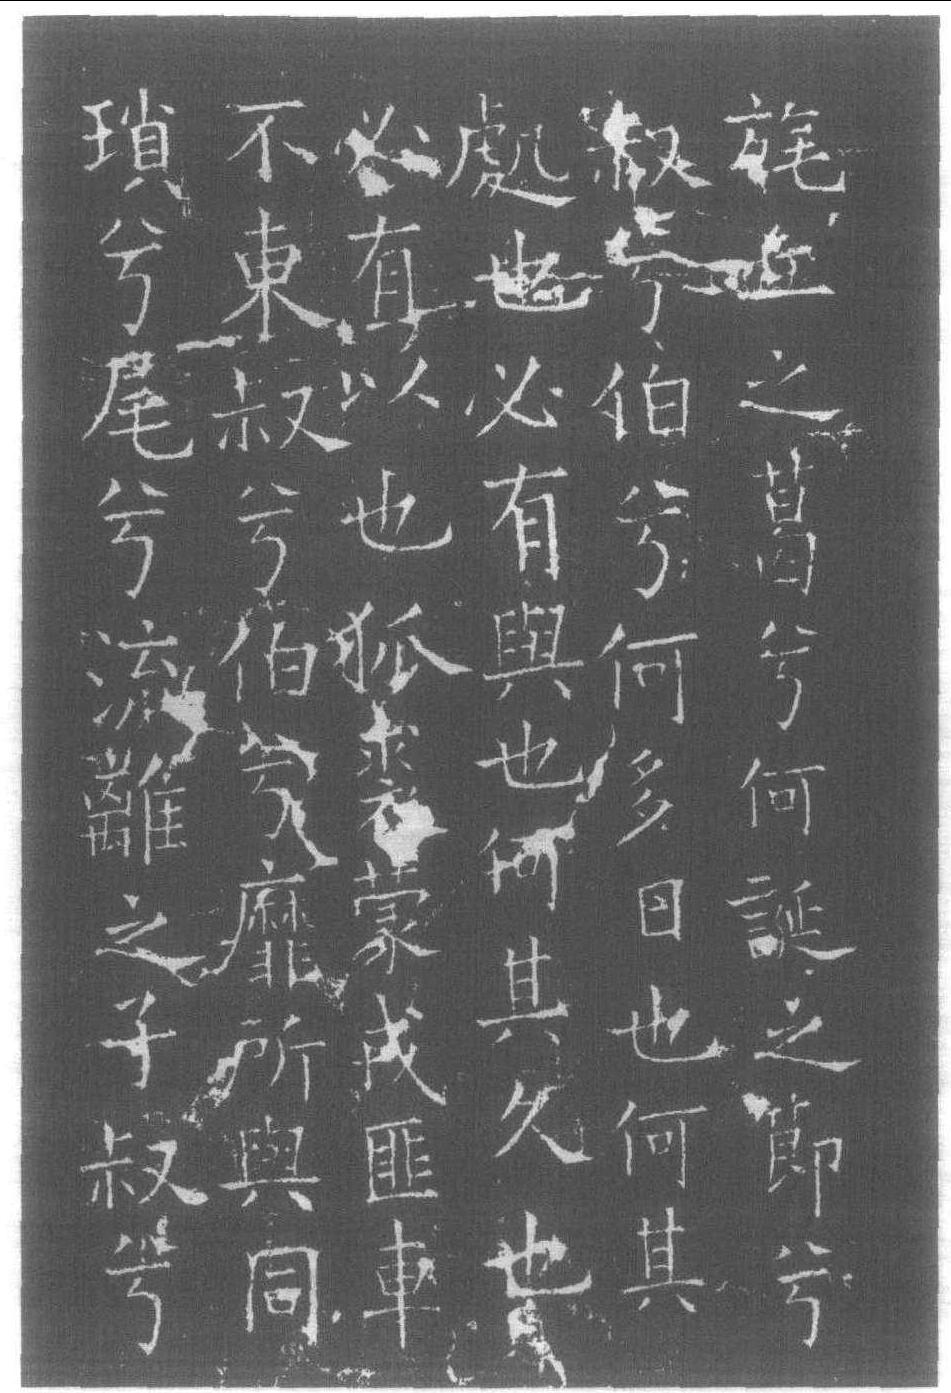 旄丘之葛兮何誕之節兮
叔兮伯兮何多日也何其
處也必有與也何其久也
必有以也狐裘蒙戎匪車
不東叔兮伯兮靡所與同
瑣兮尾兮流離之子叔兮